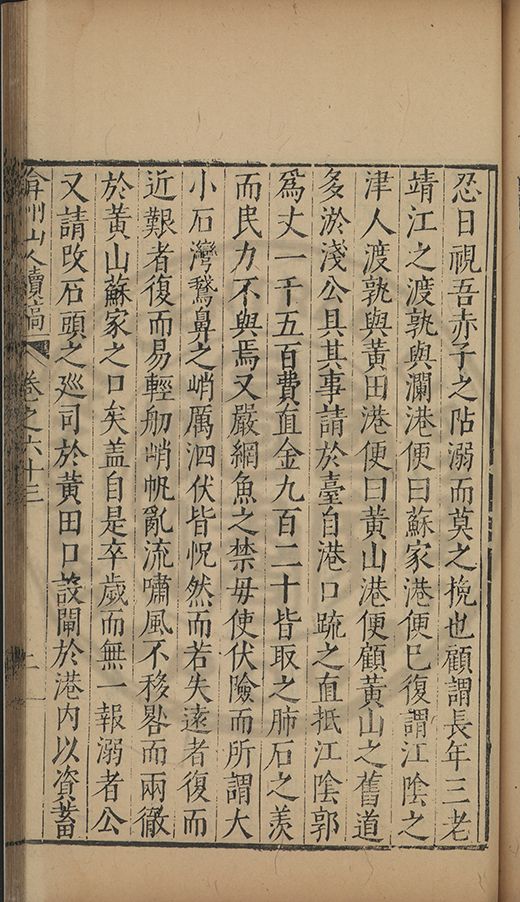 忍日視吾赤子之阽溺而莫之挽也顧謂長年三老
靖江之渡孰與瀾港便曰蘇家港便已復謂江陰之
津人渡孰與黃田港便曰黃山港便顧黃山之舊道
多淤淺公具其事請於臺自港口疏之直抵江陰郭
爲丈一千五百費直金九百二十皆取之肺石之羡
而民力不與焉又嚴網魚之禁毋使伏險而所謂大
小石灣鵝鼻之峭厲泗伏皆怳然而若失遠者復而
近艱者復而易輕舠峭帆亂流嘯風不移晷而兩徹
於黃山蘇家之口矣蓋自是卒歲而無一報溺者公
又請改石頭之廵司於黃田口設閘於港内以資蓄
弇州山人續稿
卷之六十三
二